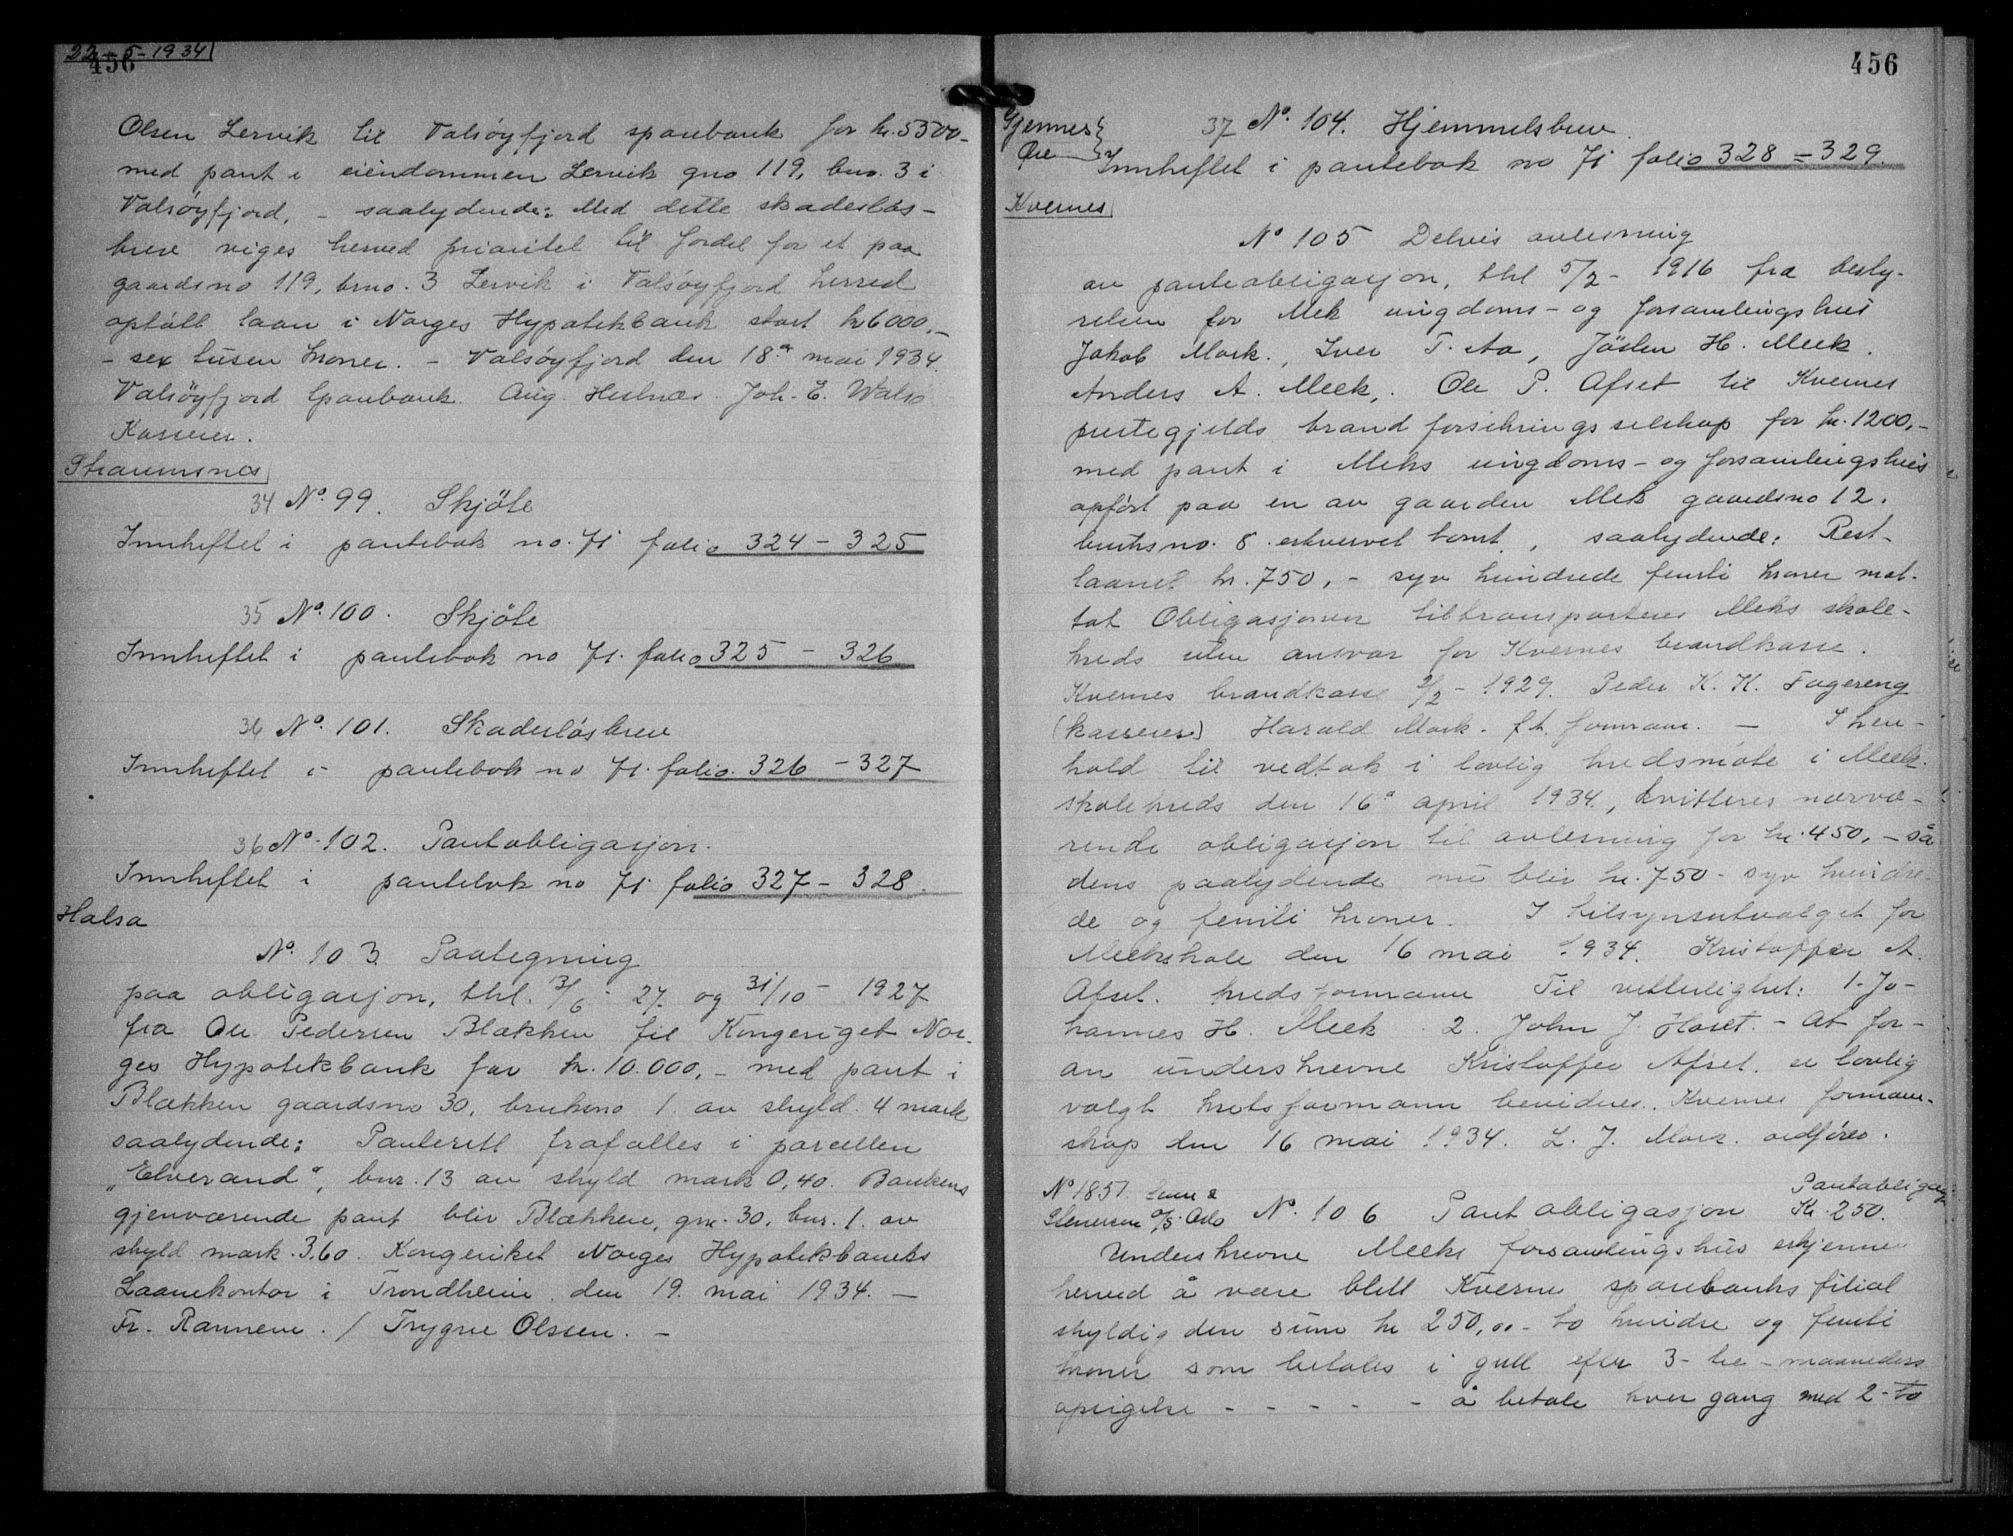 22-5-1934
456
Olsen Lervik til Valsøyfjord sparebank for kr. 5500-
med pant i eiendommen Lervik gno 119, bno. 3 i
Valsøyfjord, - saalydende: Med dette skadesløs-
brev viges herved prioritet til fordel for et paa
gaardsno 119, brno. 3 Lervik i Valsøyfjord herred
optatt laan i Norges Hypotekbank stort kr 6000,-
- sex tusen kroner. - Valsøyfjord den 18de mai 1934.
Valsøyfjord Sparebank. Aug. Hestnæs. Joh. E. Walsø
Kasserer.
Straumsnes
34 No. 99. Skjöte
Innheftet i pantebok no. 71 folio 324 - 325
35 No. 100. Skjöte
Innheftet i pantebok no 71. folio 325 - 326
36 No. 101. Skadeslösbrev
Innheftet i pantebok no 71. folio. 326 - 327
36 No. 102. Pantobligasjon.
Innheftet i pantebok no 71. folio 327 - 328.
Halsa
No. 103. Paategning
paa obligasjon, thl. 3/6 - 27. og 31/10 - 1927
fra Ole Pedersen Blækken til Kongeriget Nor-
ges Hypotekbank for kr. 10.000,- med pant i
Blækken gaardsno 30, bruksno 1. av skyld. 4 mark
saalydende: Panterett frafalles i parcellen
"Elverand", bnr. 13 av skyld mark 0,40. Bankens
gjenværende pant blir Blækken, gnr. 30, bnr. 1. av
skyld mark. 3,60. Kongeriket Norges Hypotekbanks
Laanekontor i Trondheim. den 19. mai 1934. -
Fr. Rannem. / Trygve Olssen. -
456
Gjemnes
Øre
37 No. 104. Hjemmelsbrev.
Innheftet i pantebok no 71 folio 328 = 329.
Kvernes
No 105 Delvis avlesning
av panteobligasjon, thl 5/2 - 1916 fra besty-
relsen for Mek ungdoms- og forsamlingshus
Jakob Mork., Iver T. Aa, Jöslen H. Meek.
Anders A. Meek,. Ole P. Afset til Kvernes
prestegjelds brand forsikrings selskap for kr. 1200,-
med pant i Meks ungdoms- og forsamlingshus
opført paa en av gaarden Mek gaardsno 12.
bruksno. 8. erhvervet tomt, saalydende: Rest-
laanet kr. 750,- syv hundrede femti kroner mot-
tat Obligasjonen tiltransporteres Meks skole-
kreds uten ansvar for Kvernes brandkasse.
Kvernes brandkasse 2/2 - 1929. Peder K. K. Fagereng
(kasserer) Harald Mork. f.t. formann. - I hen-
hold til vedtak i lovlig kredsmøte i Meek
skolekreds den 16de april 1934., kvitteres nærvæ-
rende obligasjon til avlesning for kr. 450,- så
dens paalydende nu blir kr. 750 - syv hundre-
de og femti kroner. I tilsynsutvalget for
Meekskole den 16 mai 1934. Kristoffer A.
Afset. kredsformann Til vitterlighet: 1. Jo-
hannes H. Meek 2. John J. Høset. - At for-
an underskrevne Kristoffer Afset. er lovlig
valgt kretsformann bevidnes. Kvernes formann-
skap den 16 mai 1934. L. J. Mork. ordfører.
No 1851. Sem &
Stenersen A/S. Oslo No. 106 Pantobligasjon
Pantobligasj
Kr. 250.
Underskrevne Meeks forsamlingshus erkjenner
herved å være blitt Kverne sparebanks filial
skyldig den sum kr 250,00 - to hundre og femti
kroner som betales i gull efter 3- tre - maaneders
opsigelse - - - - - å betale hver gang med 2 - to